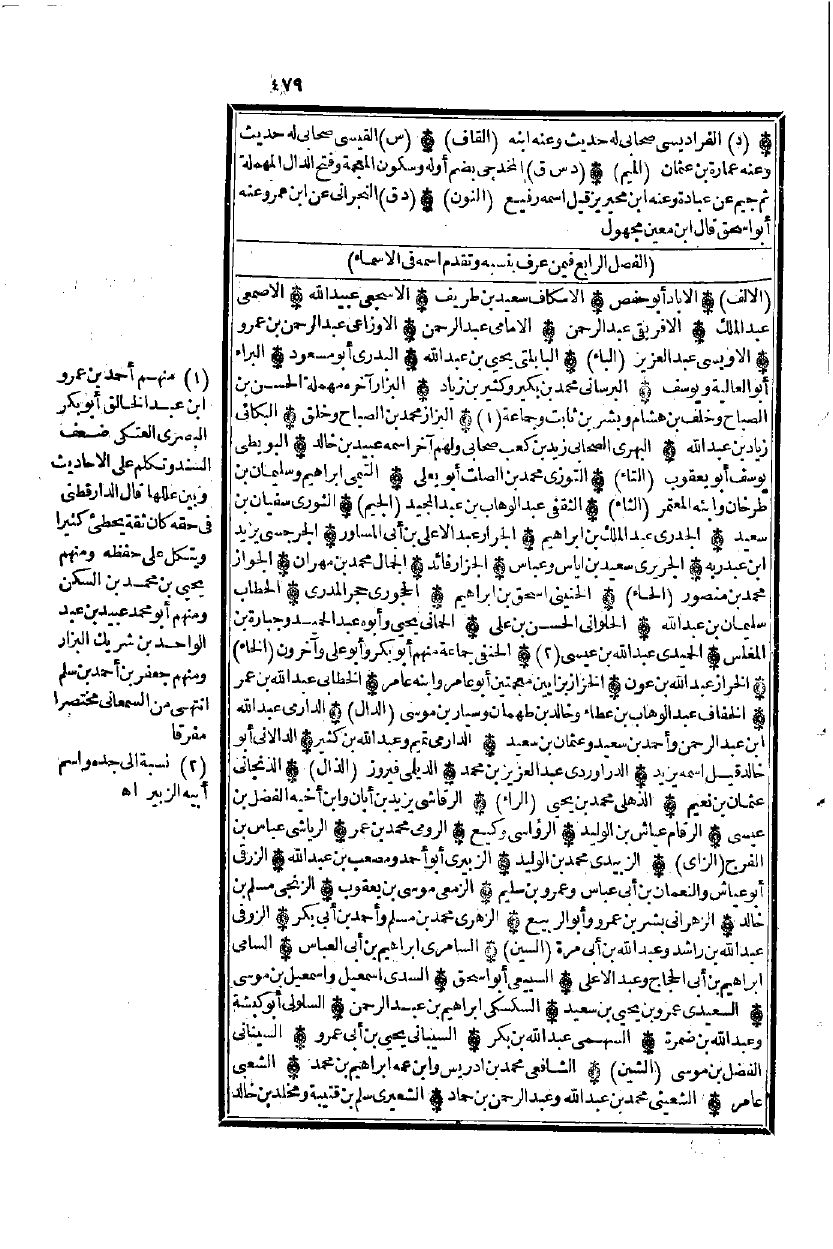 ٤٧٩
(د) الفراديسى صحابى له حديث وعنه ابنه (القاف) (س) القيسى صحابى له حديث
وعنه عمارة بن عثمان (الميم) (د س ق) المخدجى بضم أوله وسكون المعجمة وفتح الدال المهملة
ثم جيم عن عبادة وعنه ابن محيريز قيل اسمه رفيع (النون) (د ق) النجرانى عن ابن عمر وعنه
أبو اسحق قال ابن معين مجهول
(الفصل الرابع فيمن عرف بنسبه وتقدم اسمه فى الاسماء)
(الالف) الابار أبو حفص الاسكاف سعيد بن طريف الاشجعى عبيد الله الاصمعى
عبد الملك الافريقى عبد الرحمن الامامى عبد الرحمن الاوزاعى عبد الرحمن بن عمرو
الاويسى عبد العزيز (الباء) البابلتى يحيى بن عبد الله البدرى أبو مسعود البراء
أبو العالية ويوسف البرسانى محمد بن بكير وكثير بن زياد البزار آخره مهملة الحسن بن
الصباح وخلف بن هشام وبشر بن ثابت وجماعة (١) البزاز محمد بن الصباح وخلق البكائى
زياد بن عبد الله البهزى الصحابى زيد بن كعب صحابى ولهم آخر اسمه عبيد بن خالد البويطى
يوسف أبو يعقوب (التاء) التوزى محمد بن الصلت أبو يعلى التيمى ابراهيم وسليمان بن
طرخان وابنه المعتمر (الثاء) الثقفى عبد الوهاب بن عبد المجيد (الجيم) الثورى سفيان بن
سعيد الجدرى عبد الملك بن ابراهيم الجرار عبد الاعلى بن أبى المساور الجرجسى يزيد
ابن عبد ربه الجريرى سعيد بن اياس وعباس الجزار فائد الجمال محمد بن مهران الجواز
محمد بن منصور (الحاء) الحنينى اسحق بن ابراهيم الحجورى حجر المدرى الحطاب
سليمان بن عبد الله الحلوانى الحسن بن على الحمانى يحيى وأبوه عبد الحميد وجبارة بن
المغلس الحميدى عبد الله بن عيسى (٢) الحنفى جماعة منهم أبو بكر وأبو على وآخرون (الخاء)
الخراز عبد الله بن عون الخزاز بزايين معجمتين أبو عامر وابنه عامر الخطابى عبد الله بن عمر
الخفاف عبد الوهاب بن عطاء وخالد بن طهمان وسيار بن موسى (الدال) الدارى عبد الله
ابن عبد الرحمن وأحمد بن سعيد وعثمان بن سعيد الدارمى تميم وعبد الله بن كثير الدالانى أبو
خالد قيل اسمه يزيد الدراوردى عبد العزيز بن محمد الديلى فيروز (الذال) الذنجانى
عثمان بن نعيم الذهلى محمد بن يحيى (الراء) الرقاشى يزيد بن أبان وابن أخيه الفضل بن
عيسى الرقام عياش بن الوليد الرؤاسى وكيع الرومى محمد بن عمر الرياشى عباس بن
الفرج (الزاى) الزبيدى محمد بن الوليد الزبيرى أبو أحمد ومصعب بن عبد الله الزرقى
أبو عياش والنعمان بن أبى عياش وعمرو بن سليم الزمعى موسى بن يعقوب الزنجى مسلم بن
خالد الزهرانى بشر بن عمرو وأبو الربيع الزهرى محمد بن مسلم وأحمد بن أبى بكر الزوفى
عبد الله بن راشد وعبد الله بن أبى مرة (السين) السامرى ابراهيم بن أبى العباس السامى
ابراهيم بن أبى الحجاج وعبد الاعلى السبيعى أبو اسحق السدى اسمعيل واسمعيل بن موسى
السعيدى عمرو بن يحيى بن سعيد السكسكى ابراهيم بن عبد الرحمن السلولى أبو كبشة
وعبد الله بن ضمرة السهمى عبد الله بن بكر السيبانى يحيى بن أبى عمرو السينانى
الفضل بن موسى (الشين) الشافعى محمد بن ادريس وابن عمه ابراهيم بن محمد الشعبى
عامر الشعيثى محمد بن عبد الله وعبد الرحمن بن حماد الشعيرى سلم بن قتيبة ومخلد بن خالد
(١) منهم أحمد بن عمرو
ابن عبد الخالق أبو بكر
البصرى العتكى ضعف
السند وتكلم على الاحاديث
وبين عللها قال الدارقطنى
فى حقه كان ثقة يخطئ كثيرا
ويتكل على حفظه ومنهم
يحيى بن محمد بن السكن
ومنهم أبو محمد عبيد بن عبد
الواحد بن شريك البزار
ومنهم جعفر بن أحمد بن سلم
انتهى من السمعانى مختصرا
مفرقا
(٢) نسبة الى جده واسم
أبيه الزبير اه